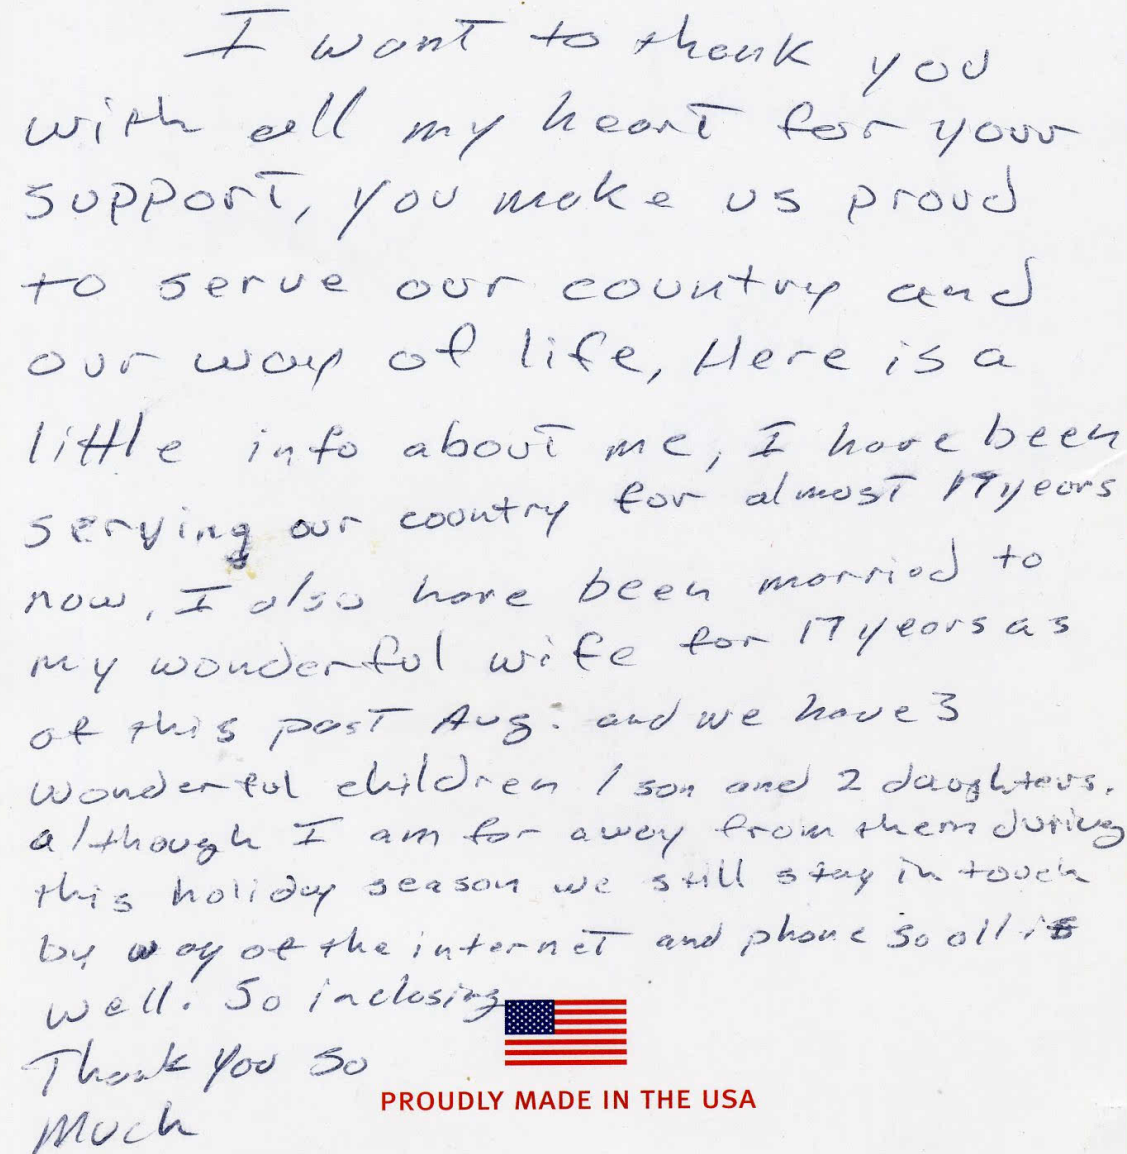 I want to thank you
with all my heart for your
support, you make us proud
to serve our country and
our way of life, Here is a
little info about me, I have been
serving our country for almost 19 years
now, I also have been married to
my wonderful wife for 17 years as
of this past Aug. and we have 3
wonderful children 1 son and 2 daughters.
although I am far away from them during
this holiday season we still stay in touch
by way of the internet and phone so all is
well. So inclosing
Thank You So
Much
PROUDLY MADE IN THE USA